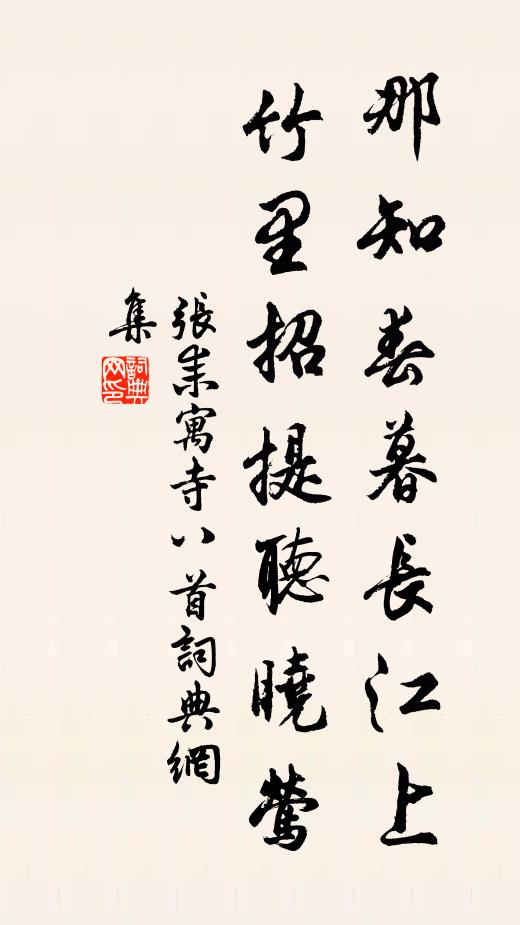 那知春暮長江上
竹里招提聽曉鶯
張耒寓寺八首詞典網
集
詞典网印